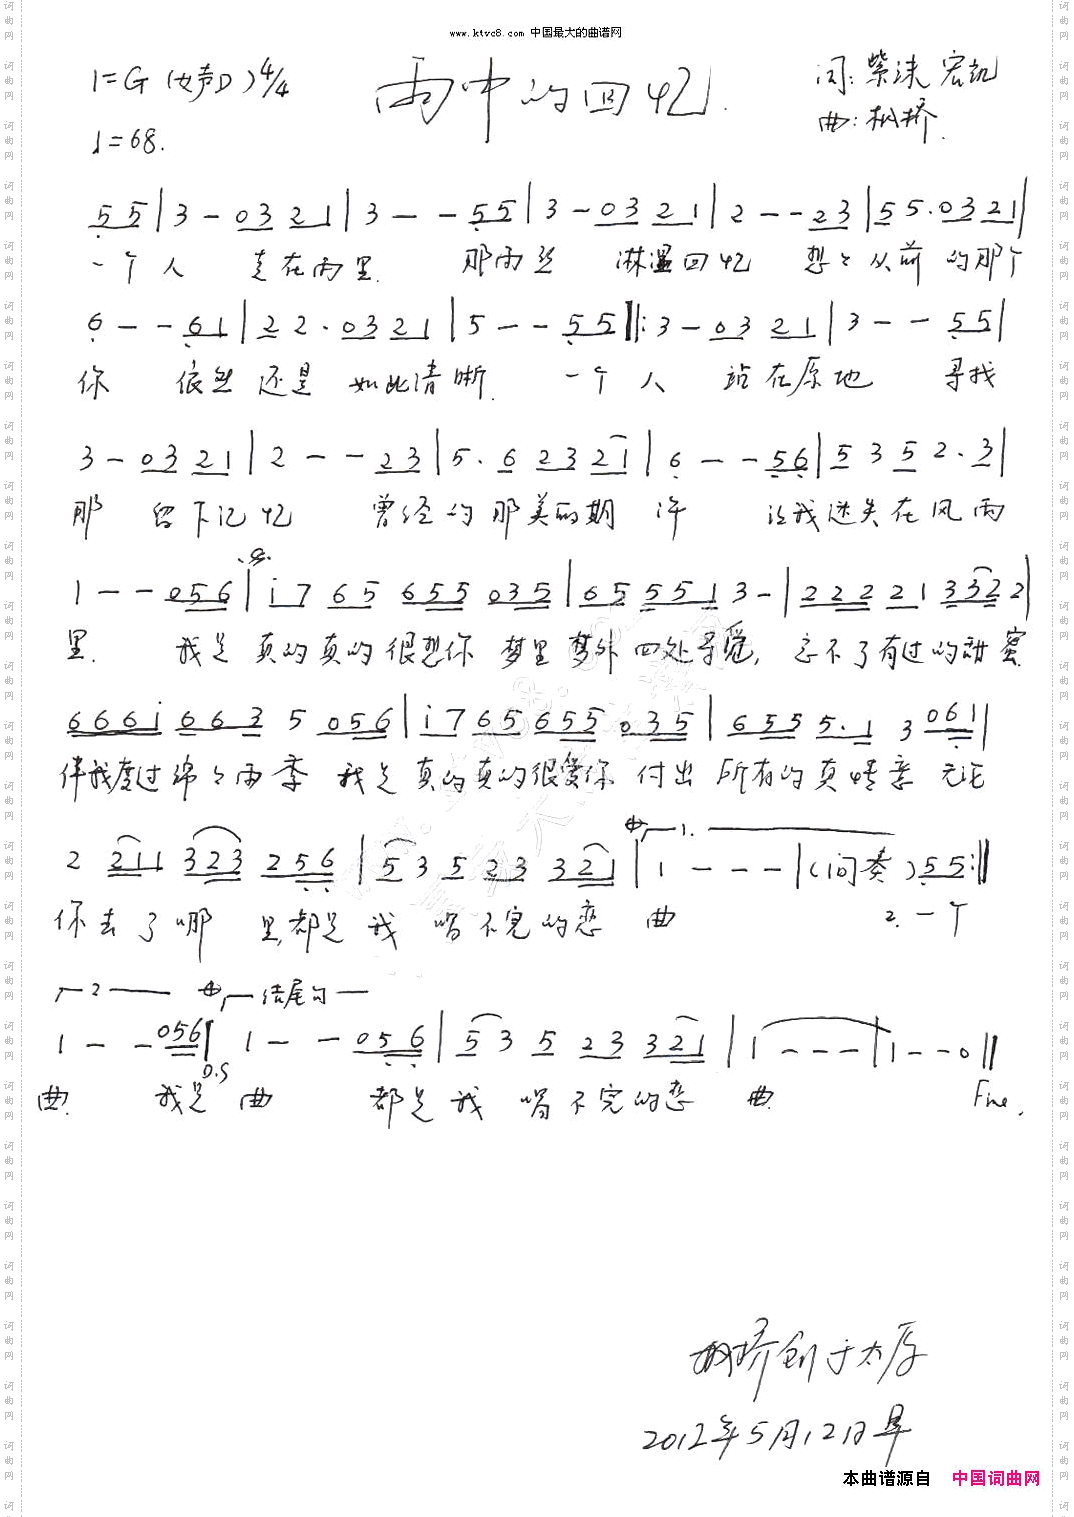 www.ktvc8.com 中国最大的曲谱网
1=G (女声D) 4/4
雨中的回忆
词: 紫沫 宏凯
♩=68.
曲: 松桥.
5 5 | 3 - 0 3 2 1 | 3 - - 5 5 | 3 - 0 3 2 1 | 2 - - 2 3 | 5 5. 0 3 2 1 |
一个人 走在雨里 那雨丝 淋湿回忆 想想从前 的那个
6 - - 6 1 | 2 2. 0 3 2 1 | 5 - - 5 5 ‖: 3 - 0 3 2 1 | 3 - - 5 5 |
你 依然还是 如此清晰. 一个人 站在原地 寻找
3 - 0 3 2 1 | 2 - - 2 3 | 5. 6 2 3 2 1 | 6 - - 5 6 | 5 3 5 2. 3 |
那 留下记忆 曾经的那美丽期许 让我迷失在风雨
1 - - 0 5 6 | i 7 6 5 6 5 5 0 3 5 | 6 5 5 5 1 3 - | 2 2 2 2 1 3 3 2 2 |
里. 我是真的真的很想你 梦里梦外四处寻觅, 忘不了有过的甜蜜
6 6 6 i 6 6 3 5 0 5 6 | i 7 6 5 6 5 5 0 3 5 | 6 5 5 5. 1 3 0 6 1 |
伴我度过绵绵雨季 我是真的真的很爱你 付出所有的真情意 无论
1.
2 2 1 1 3 2 3 2 5 6 | 5 3 5 2 3 3 2 1 | 1 - - - | (间奏) 5 5 :‖
你去了哪里, 都是我 唱不完的恋曲 2. 一个
2 结尾句
1 - - 0 5 6 ‖ 1 - - 0 5 6 | 5 3 5 2 3 3 2 1 | 1 - - - | 1 - - 0 ‖
D.S
曲. 我是 曲 都是我 唱不完的恋曲. Fine.
松桥创于太原
2012年5月12日早
本曲谱源自 中国词曲网